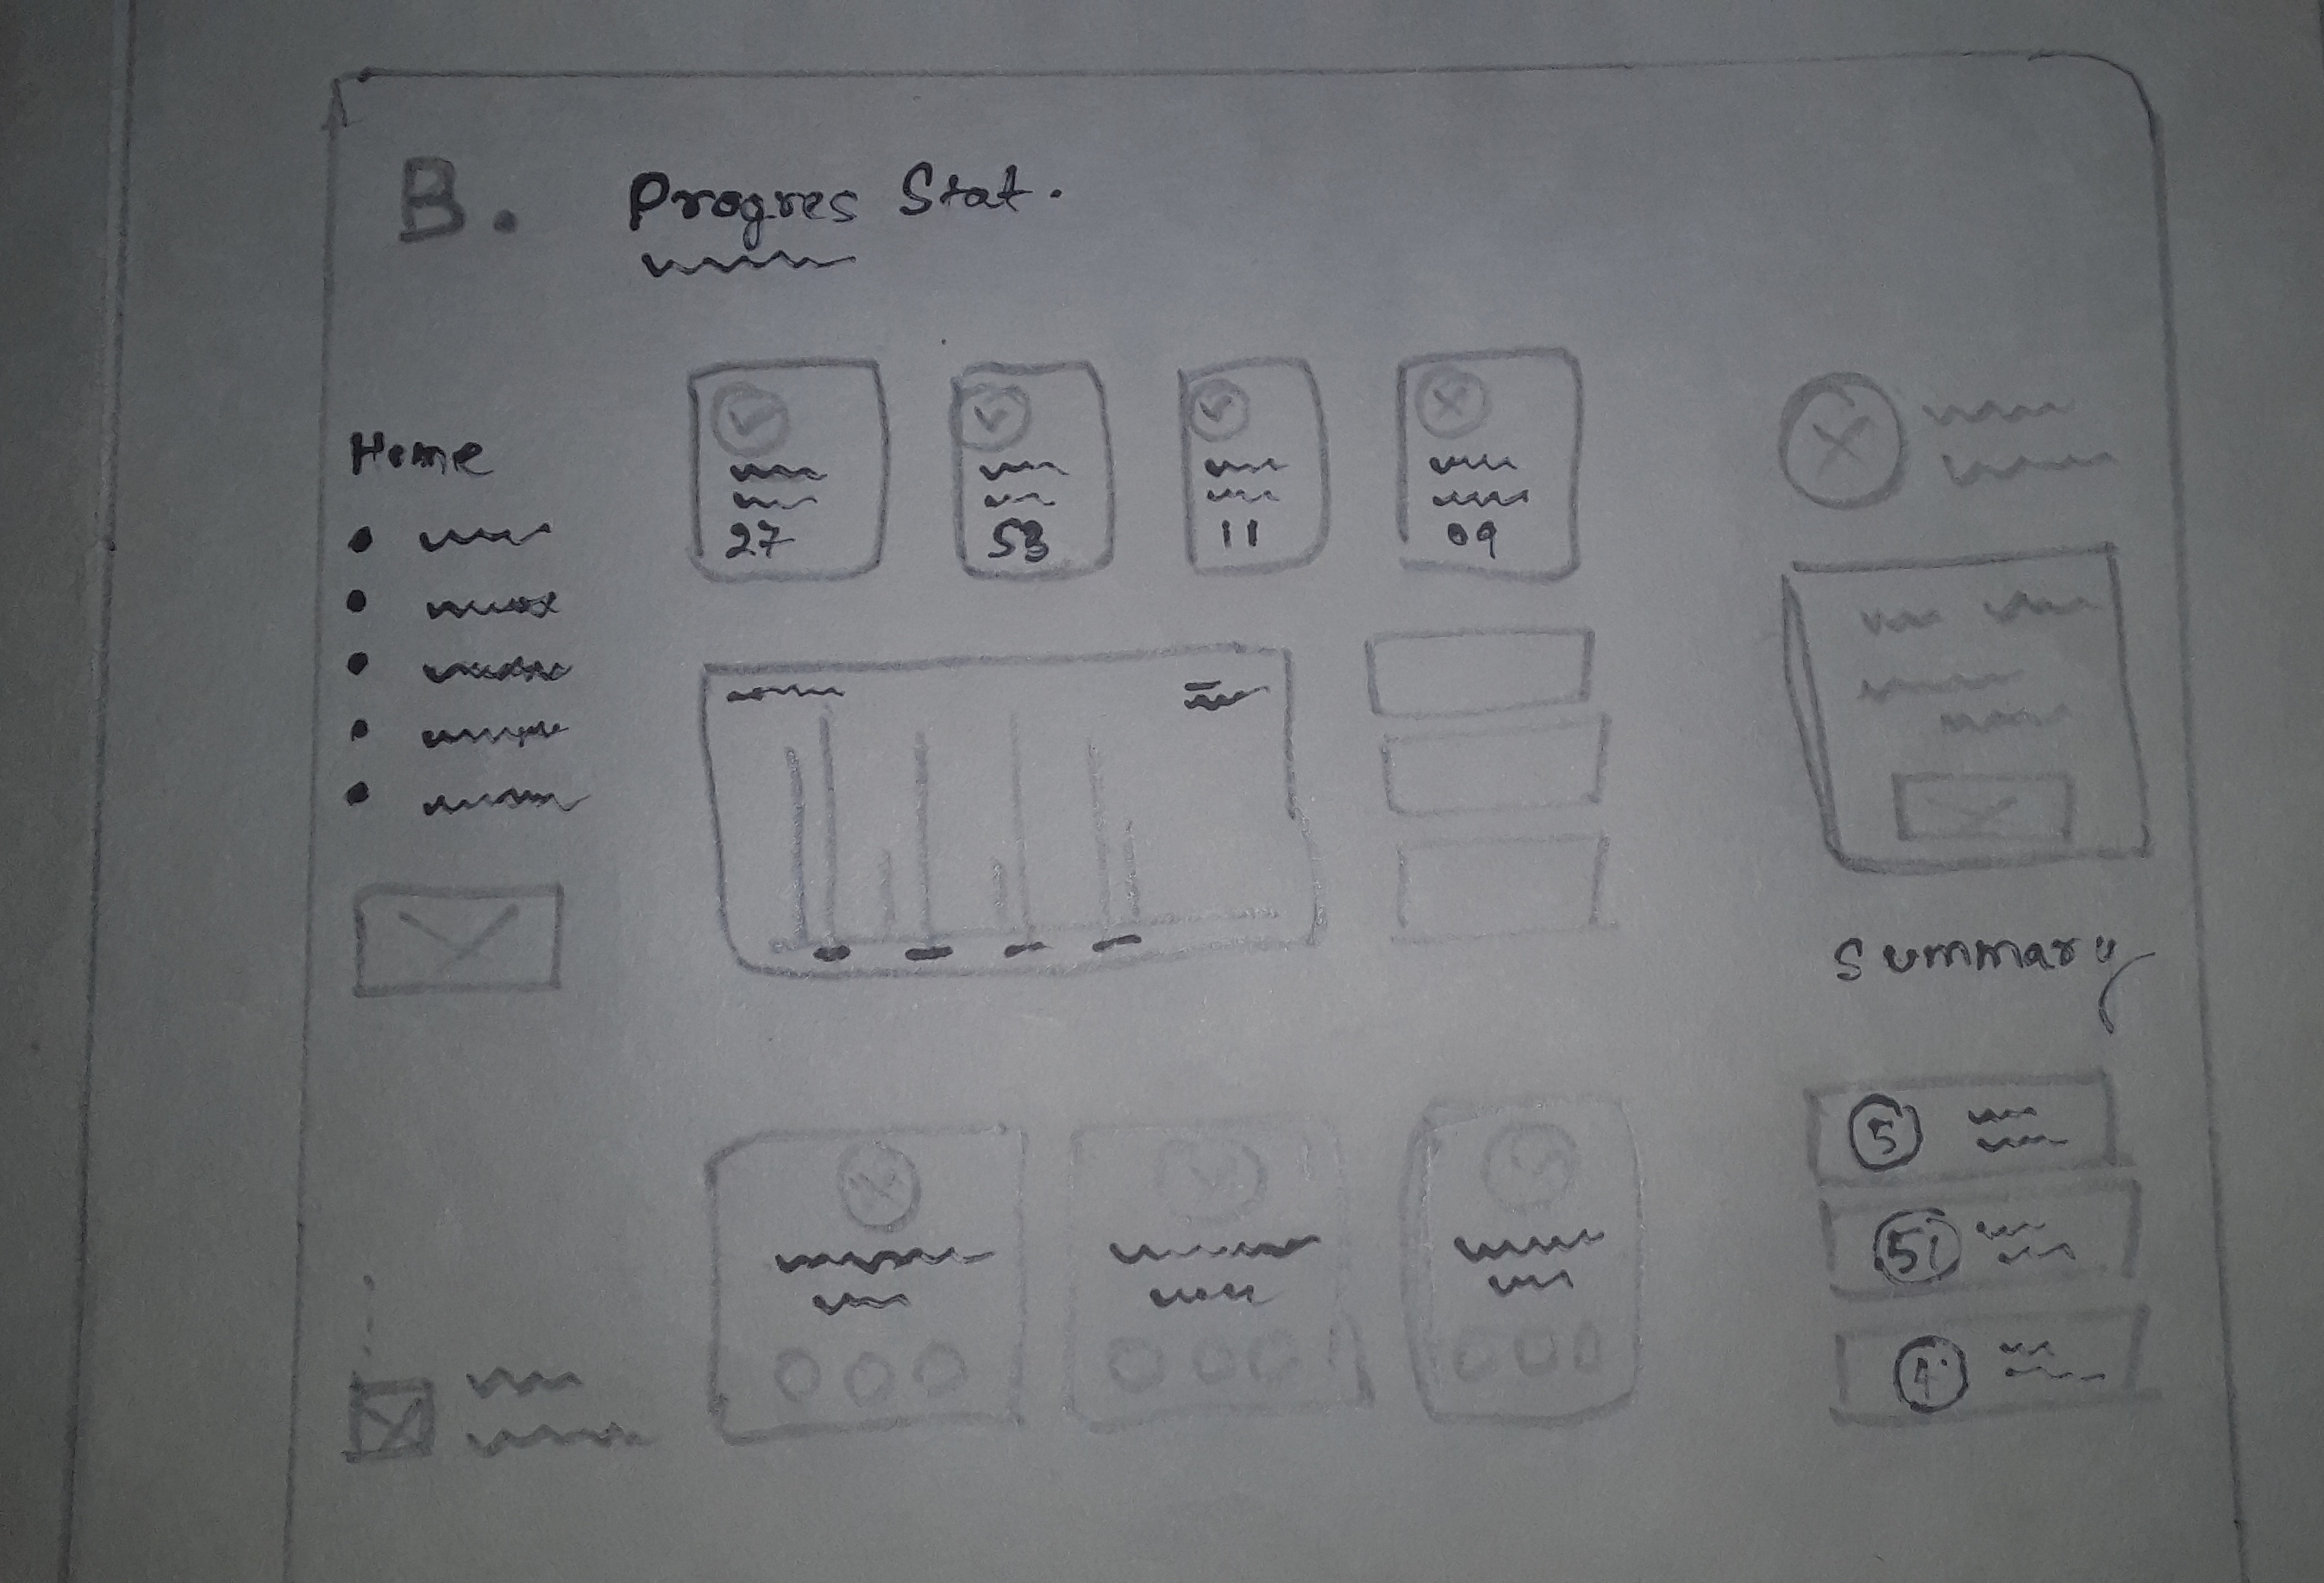 B.
Progres Stat.
Home
27
53
11
09
Summary
5
51
4